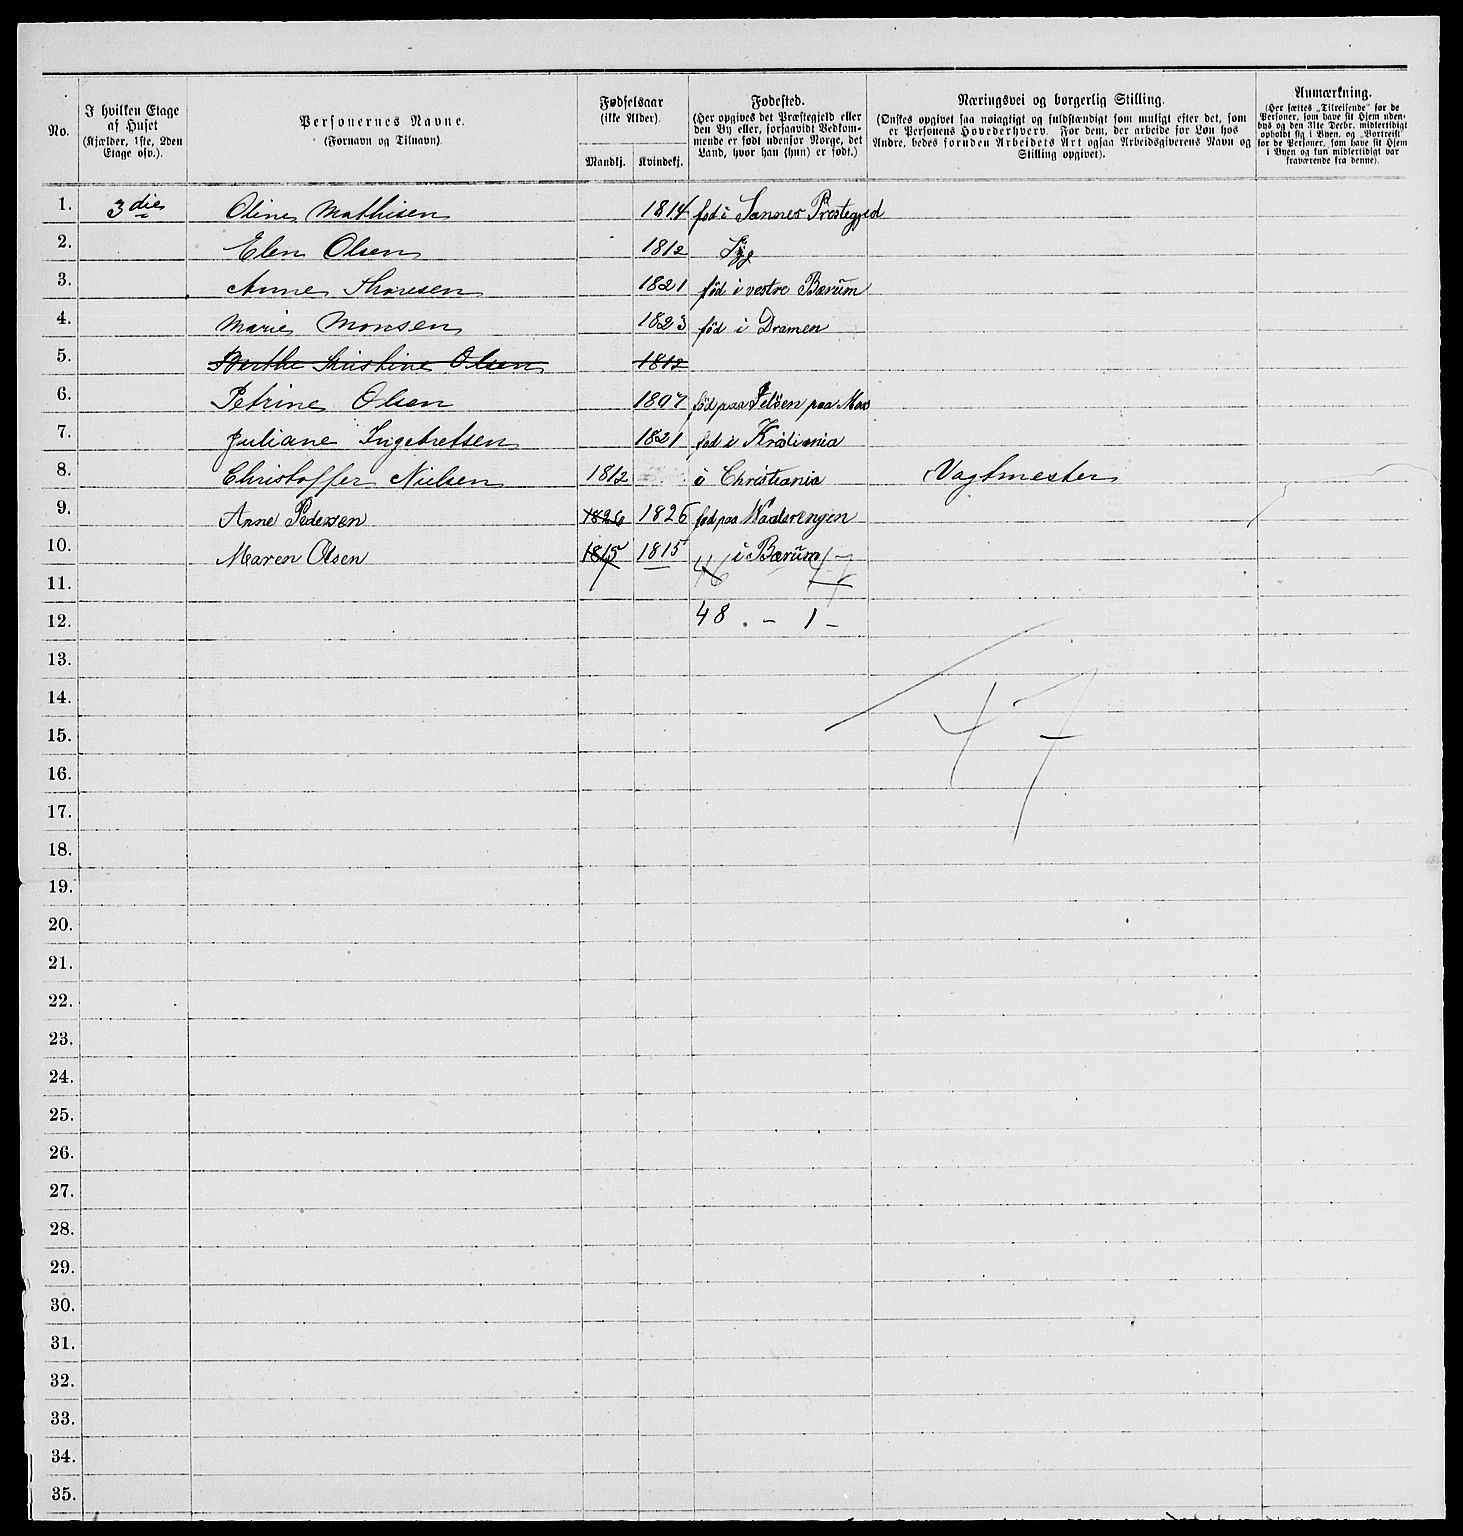 No.
I hvilken Etage af Huset (Kjælder, 1ste, 2den Etage osv.).
Personernes Navne. (Fornavn og Tilnavn)
Fødselsaar (ikke Alder).
Mandkj. Kvindekj.
Fødested. (Her opgives det Præstegjeld eller den By eller, forsaavidt Vedkommende er født udenfor Norge, det Land, hvor han (hun) er født.)
Næringsvei og borgerlig Stilling. (Ønskes opgivet saa nøiagtigt og fuldstændigt som muligt efter det, som er Personens Hovederhverv. For dem, der arbeide for Løn hos Andre, bedes foruden Arbeidets Art ogsaa Arbeidsgiverens Navn og Stilling opgivet).
Anmærkning. (Her sættes „Tilreisende“ for de Personer, som have sit Hjem udenbys og den 31te Decbr. midlertidigt opholdt sig i Byen, og „Bortreist“ for de Personer, som have sit Hjem i Byen og kun midlertidigt var fraværende fra denne).
1. 3die Oline Mathisen 1814 fød i Sannes Prestegjed
2. Elen Olsen 1812
3. Anne Thoresen 1821 fød i vestre Bærum
4. Marie Monsen 1823 fød i Dramen
5. Berthe Kristine Olsen 1812
6. Petrine Olsen 1807 fød paa Jeløen paa Mos
7. Juliane Ingebretsen 1821 fød i Kristiania
8. Christoffer Nielsen 1812 i Christiania Vagtmester
9. Anne Pedersen 1826 1826 fød paa Waalerengen
10. Maren Olsen 1815 1815 i Bærum
11. 46 47
12. 48 . - 1 -
13.
14. 47
15.
16.
17.
18.
19.
20.
21.
22.
23.
24.
25.
26.
27.
28.
29.
30.
31.
32.
33.
34.
35.